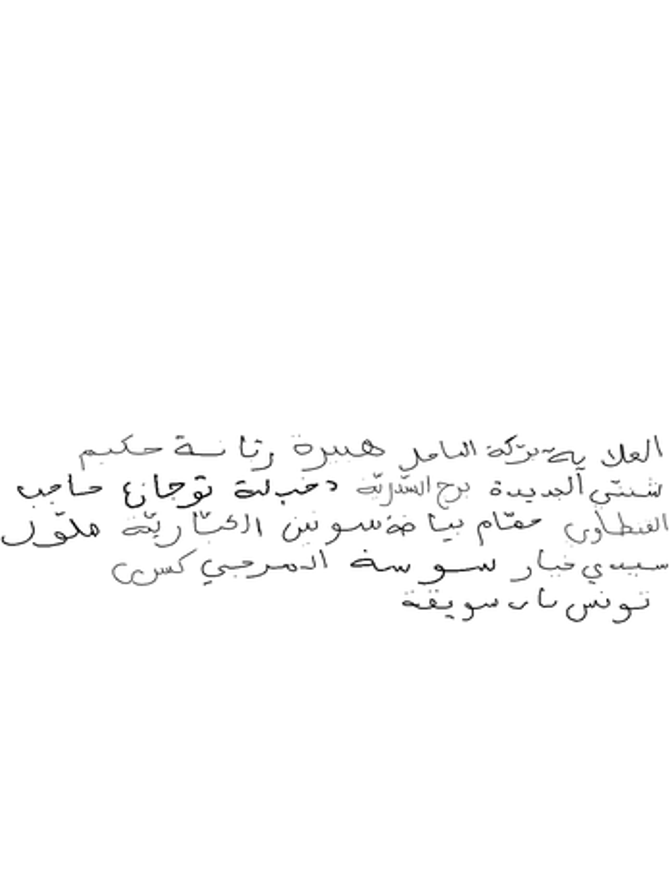 العلا بئة بركة الساحل هبيرة رتانسة حكيم
شنني الجديدة برج السدرية دخيلة توجان حاجب
القنطاوي مقام بياضة سونين الخبارية ملول
سيدي خيار سوسة المرجي كسرى
تونس باب سويقة